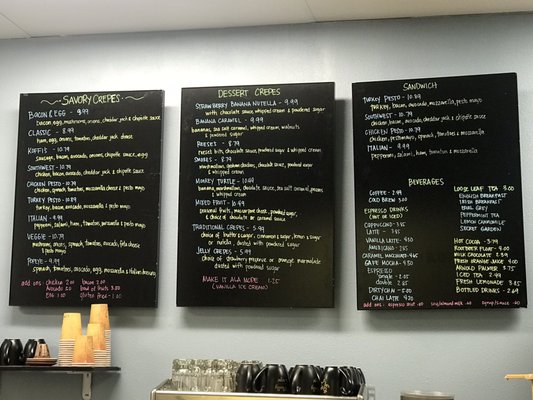 SAVORY CREPES
BACON & EGG - 9.99
bacon, egg, mushrooms, onions, cheddar jack & chipotle sauce
CLASSIC - 8.99
ham, egg, onions, tomatoes, cheddar jack cheese
sausage, bacon, avocado, onions, chipotle sauce, egg
SOUTHWEST - 10.79
chicken, bacon, avocado, cheddar jack & chipotle sauce
CHICKEN PESTO - 10.79
chicken, spinach, tomato, mozzarella & pesto mayo
TURKEY PESTO - 10.79
turkey, bacon, avocado, mozzarella & pesto mayo
ITALIAN - 9.99
pepperoni, salami, ham, tomatoes, mozzarella & pesto mayo
VEGGIE - 10.79
mushrooms, onions, spinach, tomatoes, avocado, feta cheese
& pesto mayo
POPEYE - 9.99
spinach, tomatoes, avocado, egg, mozzarella & italian dressing
add ons: chicken 2.00 bacon 2.00
Avocado 2.00
EGG 1.50 gluten free
DESSERT CREPES
STRAWBERRY BANANA NUTELLA - 9.99
with chocolate sauce, whipped cream & powdered sugar
BANANA CARAMEL - 9.99
bananas, sea salt caramel, whipped cream, walnuts
& powdered sugar
REESE'S - 8.99
reese's bits, chocolate sauce, powdered sugar & whipped cream
SMORES - 8.99
marshmallows, graham crackers, chocolate sauce, powdered sugar
& whipped cream
MONKEY TURTLE - 10.99
banana, marshmallow, chocolate sauce, sea salt caramel, pecans
& whipped cream
MIXED FRUIT - 10.99
seasonal fruits, mascarpone cheese, powdered sugar,
& choice of chocolate or caramel sauce
TRADITIONAL CREPES - 5.99
choice of butter & sugar, cinnamon & sugar, lemon & sugar
or nutella, dusted with powdered sugar
JELLY CREPES - 5.99
choice of strawberry preserve or orange marmalade
dusted with powdered sugar
MAKE IT ALA MODE 1.25
(VANILLA ICE CREAM)
SANDWICH
TURKEY PESTO - 10.89
turkey, bacon, avocado, mozzarella, pesto mayo
SOUTHWEST - 10.99
chicken, bacon, avocado, cheddar jack & chipotle sauce
CHICKEN PESTO - 10.99
chicken, pesto mayo, spinach, tomatoes & mozzarella
ITALIAN - 9.99
pepperoni, salami, ham, tomatoes & mozzarella
BEVERAGES
COFFEE - 2.99
COLD BREW 3.00
ESPRESSO DRINKS
(HOT OR ICED)
CAPPUCCINO - 3.95
LATTE - 3.95
VANILLA LATTE - 4.50
AMERICANO - 2.95
CARAMEL MACCHIATO - 4.50
CAFE MOCHA - 4.50
ESPRESSO
single - 2.00
double - 2.95
DIRTY CHAI - 5.00
CHAI LATTE 4.50
LOOSE LEAF TEA 3.00
ENGLISH BREAKFAST
IRISH BREAKFAST
EARL GREY
PEPPERMINT TEA
LEMON CHAMOMILE
SECRET GARDEN
HOT COCOA - 3.79
FROSTBITE FLOAT - 4.00
MILK CHOCOLATE 2.99
FRESH ORANGE JUICE 4.00
ARNOLD PALMER 3.75
ICED TEA 2.99
FRESH LEMONADE 3.25
BOTTLED DRINKS - 2.69
add ons: espresso shot